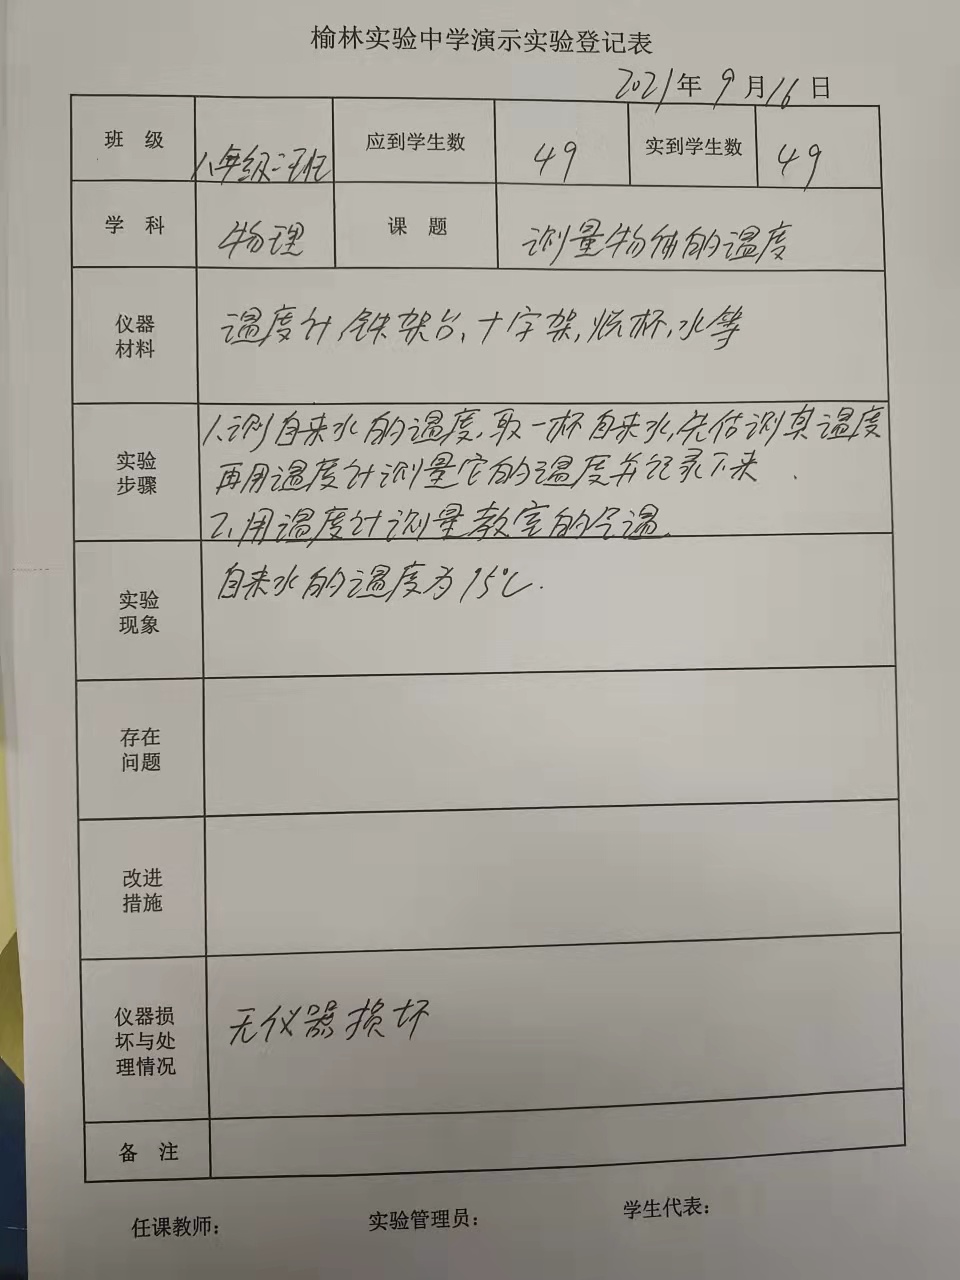 榆林实验中学演示实验登记表
2021年9月16日
班 级 八年级二班 应到学生数 49 实到学生数 49
学 科 物理 课 题 测量物体的温度
仪器
材料
温度计,铁架台、十字架,烧杯,水等
实验
步骤
1.测自来水的温度,取一杯自来水,先估测其温度
再用温度计测量它的温度并记录下来.
2.用温度计测量教室的气温.
实验
现象
自来水的温度为15℃.
存在
问题
改进
措施
仪器损
坏与处
理情况
无仪器损坏
备 注
任课教师: 实验管理员: 学生代表: